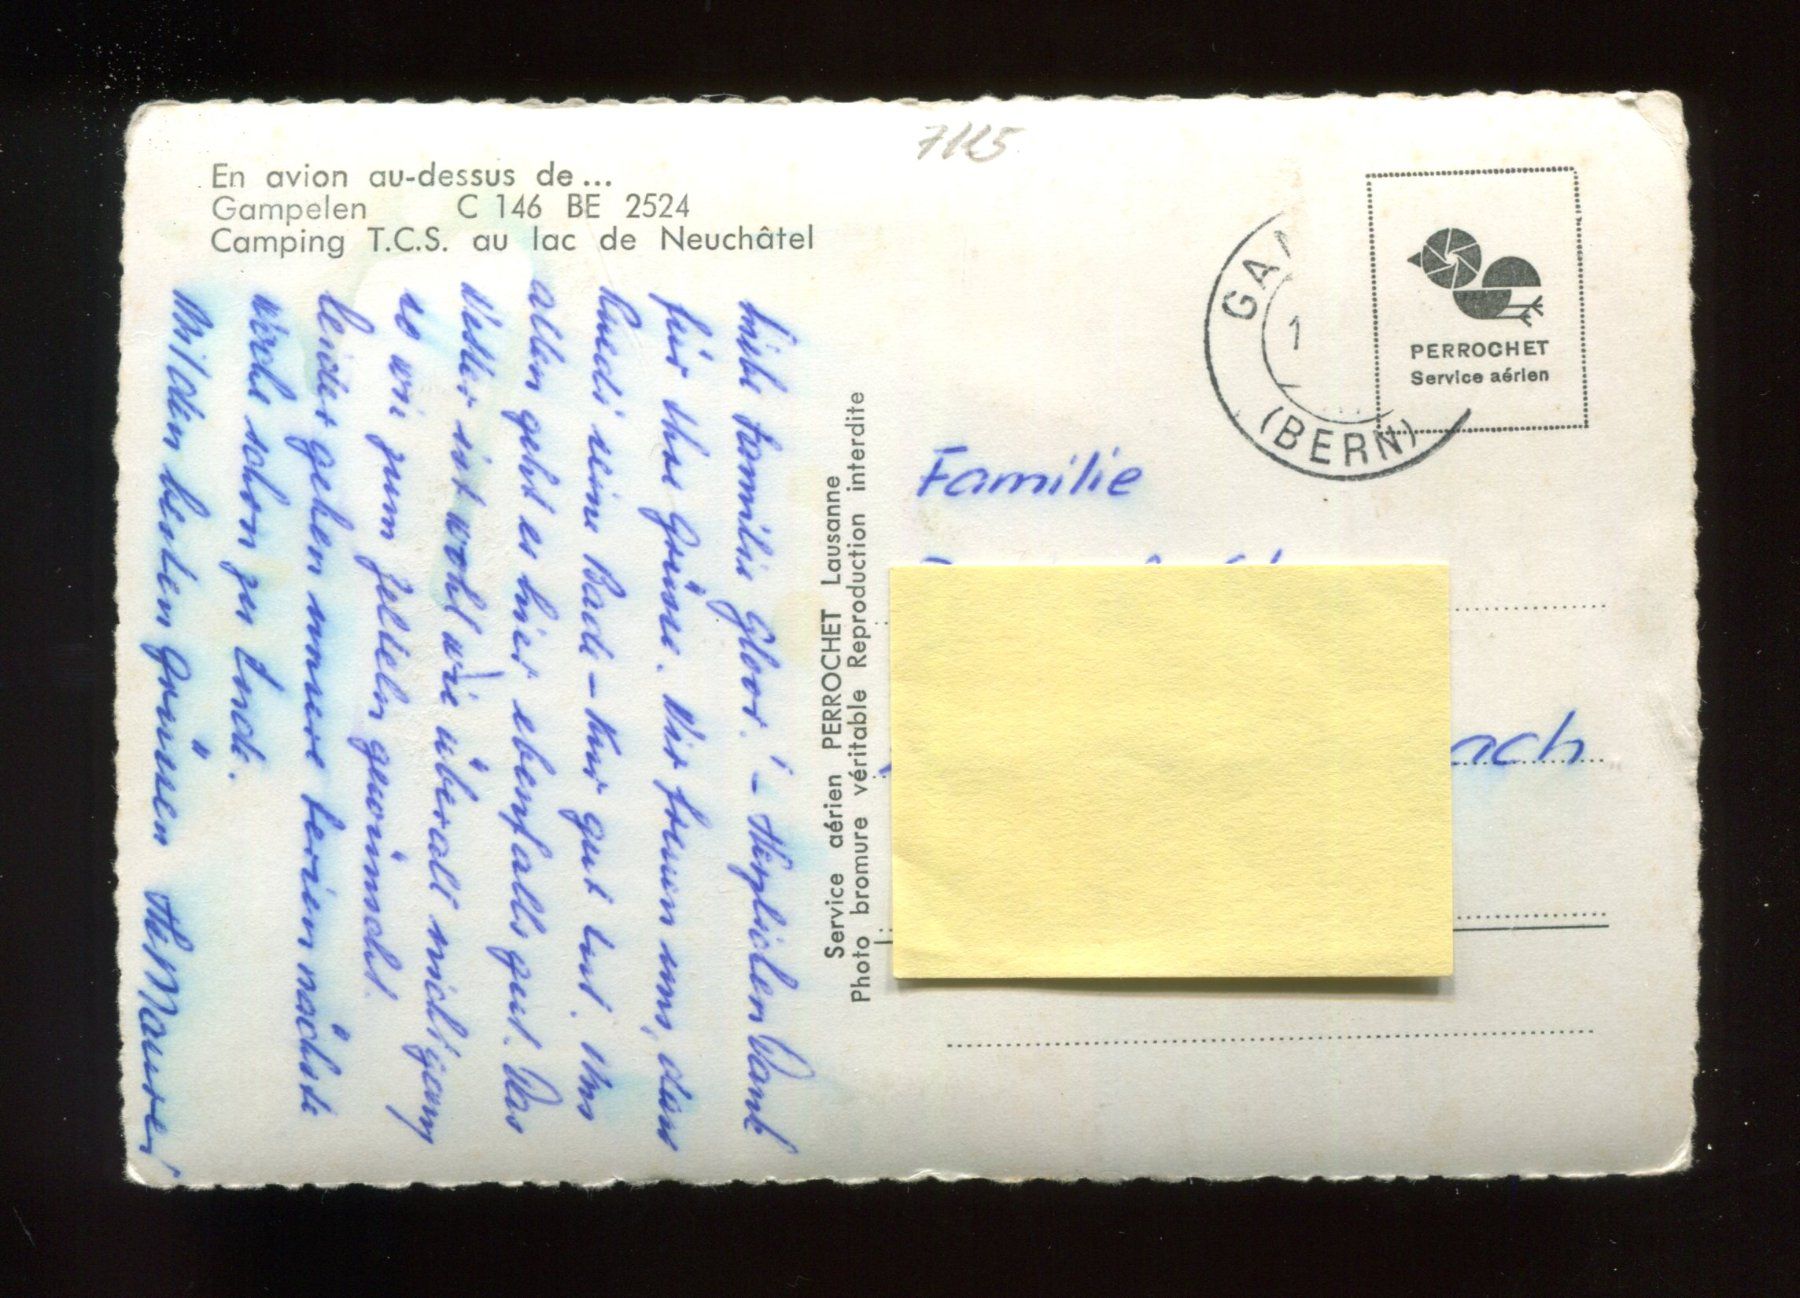 En avion au-dessus de...
Gampelen C 146 BE 2524
Camping T.C.S. au lac de Neuchâtel
7115
GA
1
(BERN)
PERROCHET
Service aérien
Service aérien PERROCHET Lausanne
Photo bromure véritable Reproduction interdite
Familie
ach
Liebe Familie Gloor! – Herzlichen Dank
für Ihre Grüsse. Wir freuen uns, dass
Ruedi seine Bade-Kur gut tut. Uns
allen geht es hier ebenfalls gut. Das
Wetter ist wohl wie überall nicht ganz
so wir zum Zelten gewünscht.
Leider gehen unsere Ferien nächste
Woche schon zu Ende.
Mit den besten Grüssen Maurer